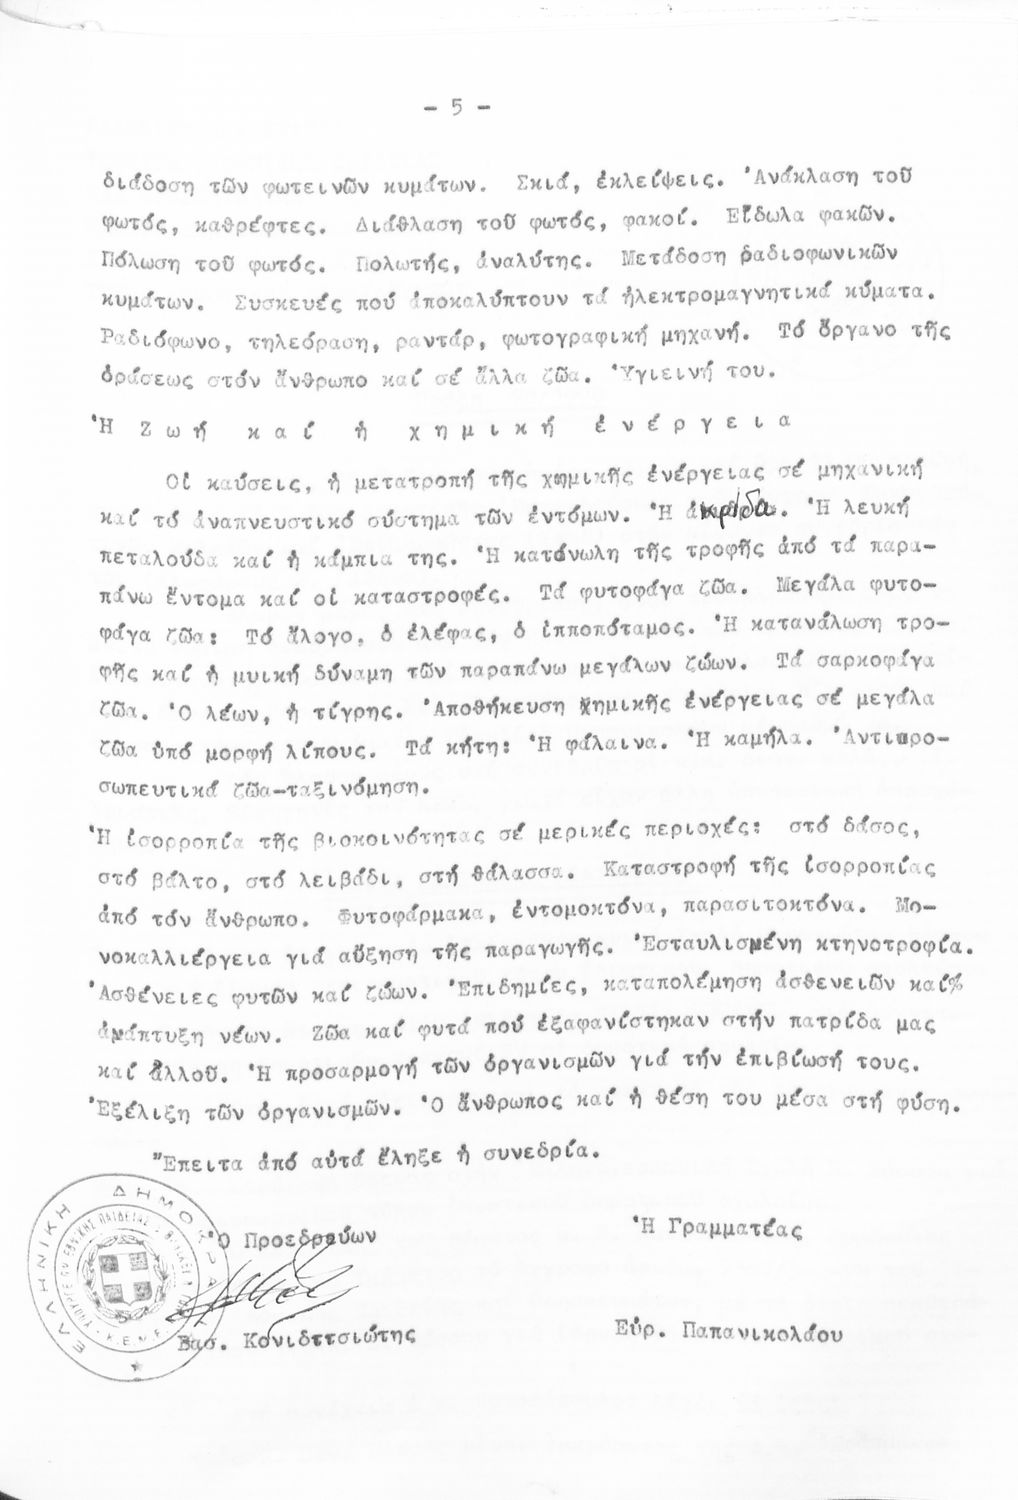 - 5 -
διάδοση τῶν φωτεινῶν κυμάτων. Σκιά, ἐκλείψεις. Ἀνάκλαση τοῦ
φωτός, καθρέφτες. Διάθλαση τοῦ φωτός, φακοί. Εἴδωλα φακῶν.
Πόλωση τοῦ φωτός. Πολωτής, ἀναλύτης. Μετάδοση ραδιοφωνικῶν
κυμάτων. Συσκευές πού ἀποκαλύπτουν τά ἠλεκτρομαγνητικά κύματα.
Ραδιόφωνο, τηλεόραση, ραντάρ, φωτογραφική μηχανή. Τό ὄργανο τῆς
ὁράσεως στόν ἄνθρωπο καί σέ ἄλλα ζῶα. Ὑγιεινή του.
Ἡ Ζωή καί ἡ χημική ἐνέργεια
Οἱ καύσεις, ἡ μετατροπή τῆς χημικῆς ἐνέργειας σέ μηχανική
καί τό ἀναπνευστικό σύστημα τῶν ἐντόμων. Ἡ ἀκρίδα. Ἡ λευκή
πεταλούδα καί ἡ κάμπια της. Ἡ κατάνωλη τῆς τροφῆς ἀπό τά παρα-
πάνω ἔντομα καί οἱ καταστροφές. Τά φυτοφάγα ζῶα. Μεγάλα φυτο-
φάγα ζῶα: Τό ἄλογο, ὁ ἐλέφας, ὁ ἱπποπόταμος. Ἡ κατανάλωση τρο-
φῆς καί ἡ μυική δύναμη τῶν παραπάνω μεγάλων ζώων. Τά σαρκοφάγα
ζῶα. Ὁ λέων, ἡ τίγρης. Ἀποθήκευση χημικῆς ἐνέργειας σέ μεγάλα
ζῶα ὑπό μορφή λίπους. Τά κήτη: Ἡ φάλαινα. Ἡ καμήλα. Ἀντιπρο-
σωπευτικά ζῶα-ταξινόμηση.
Ἡ ἰσορροπία τῆς βιοκοινότητας σέ μερικές περιοχές: στό δάσος,
στό βάλτο, στό λειβάδι, στή θάλασσα. Καταστροφή τῆς ἰσορροπίας
ἀπό τόν ἄνθρωπο. Φυτοφάρμακα, ἐντομοκτόνα, παρασιτοκτόνα. Μο-
νοκαλλιέργεια γιά αὔξηση τῆς παραγωγῆς. Ἐσταυλισμένη κτηνοτροφία.
Ἀσθένειες φυτῶν καί ζώων. Ἐπιδημίες, καταπολέμηση ἀσθενειῶν καί%
ἀνάπτυξη νέων. Ζῶα καί φυτά πού ἐξαφανίστηκαν στήν πατρίδα μας
καί ἀλλοῦ. Ἡ προσαρμογή τῶν ὀργανισμῶν γιά τήν ἐπιβίωσή τους.
Ἐξέλιξη τῶν ὀργανισμῶν. Ὁ ἄνθρωπος καί ἡ θέση του μέσα στή φύση.
Ἔπειτα ἀπό αὐτά ἔληξε ἡ συνεδρία.
Ὁ Προεδρεύων
Ἡ Γραμματέας
Βασ. Κονιδιτσιώτης
Εὐρ. Παπανικολάου
ΕΛΛΗΝΙΚΗ ΔΗΜΟΚΡΑ
Κ.Ε.Μ.Ε.